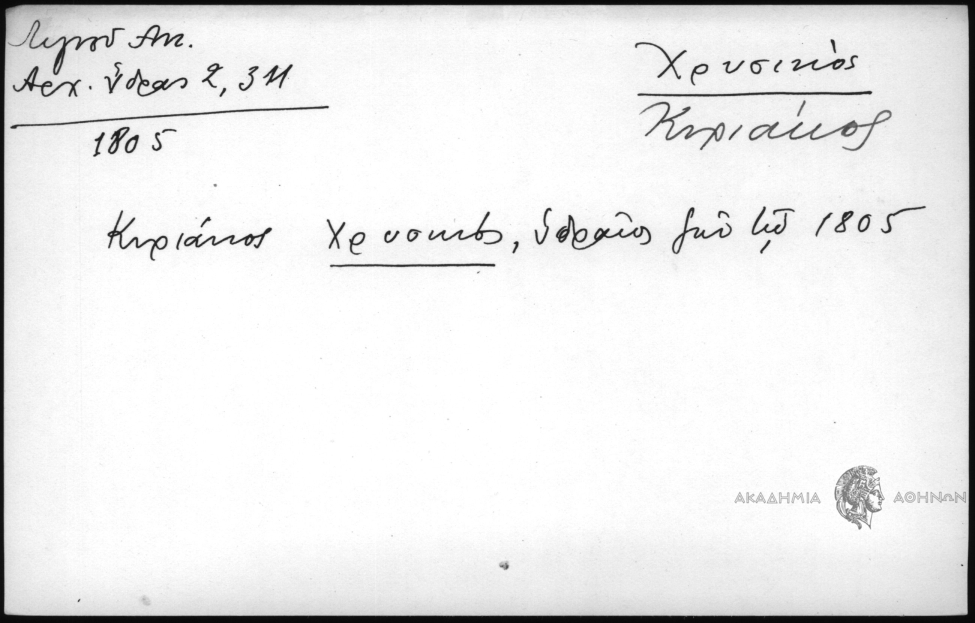 Λιγνοῦ Αντ.
Αρχ. Ύδρας 2, 311
1805
Χρυσικός
Κυριάκος
Κυριάκος Χρυσικός, Ὑδραῖος 1805
ΑΚΑΔΗΜΙΑ ΑΘΗΝΩΝ